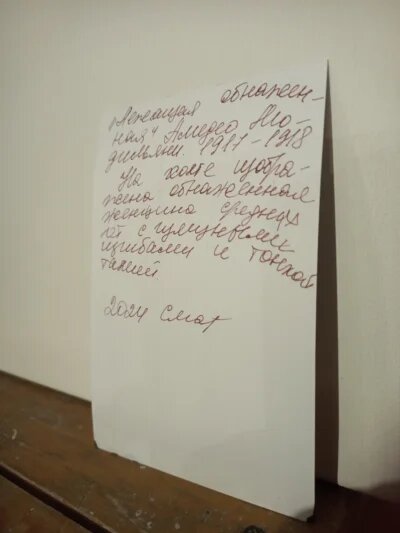 „Лежащая обнажен-
ная" Амедео Мо-
дильяни. 1911-1918
На холсте изобра-
жена обнаженная
женщина средних
лет с изящными
изгибами и тонкой
талией
2024